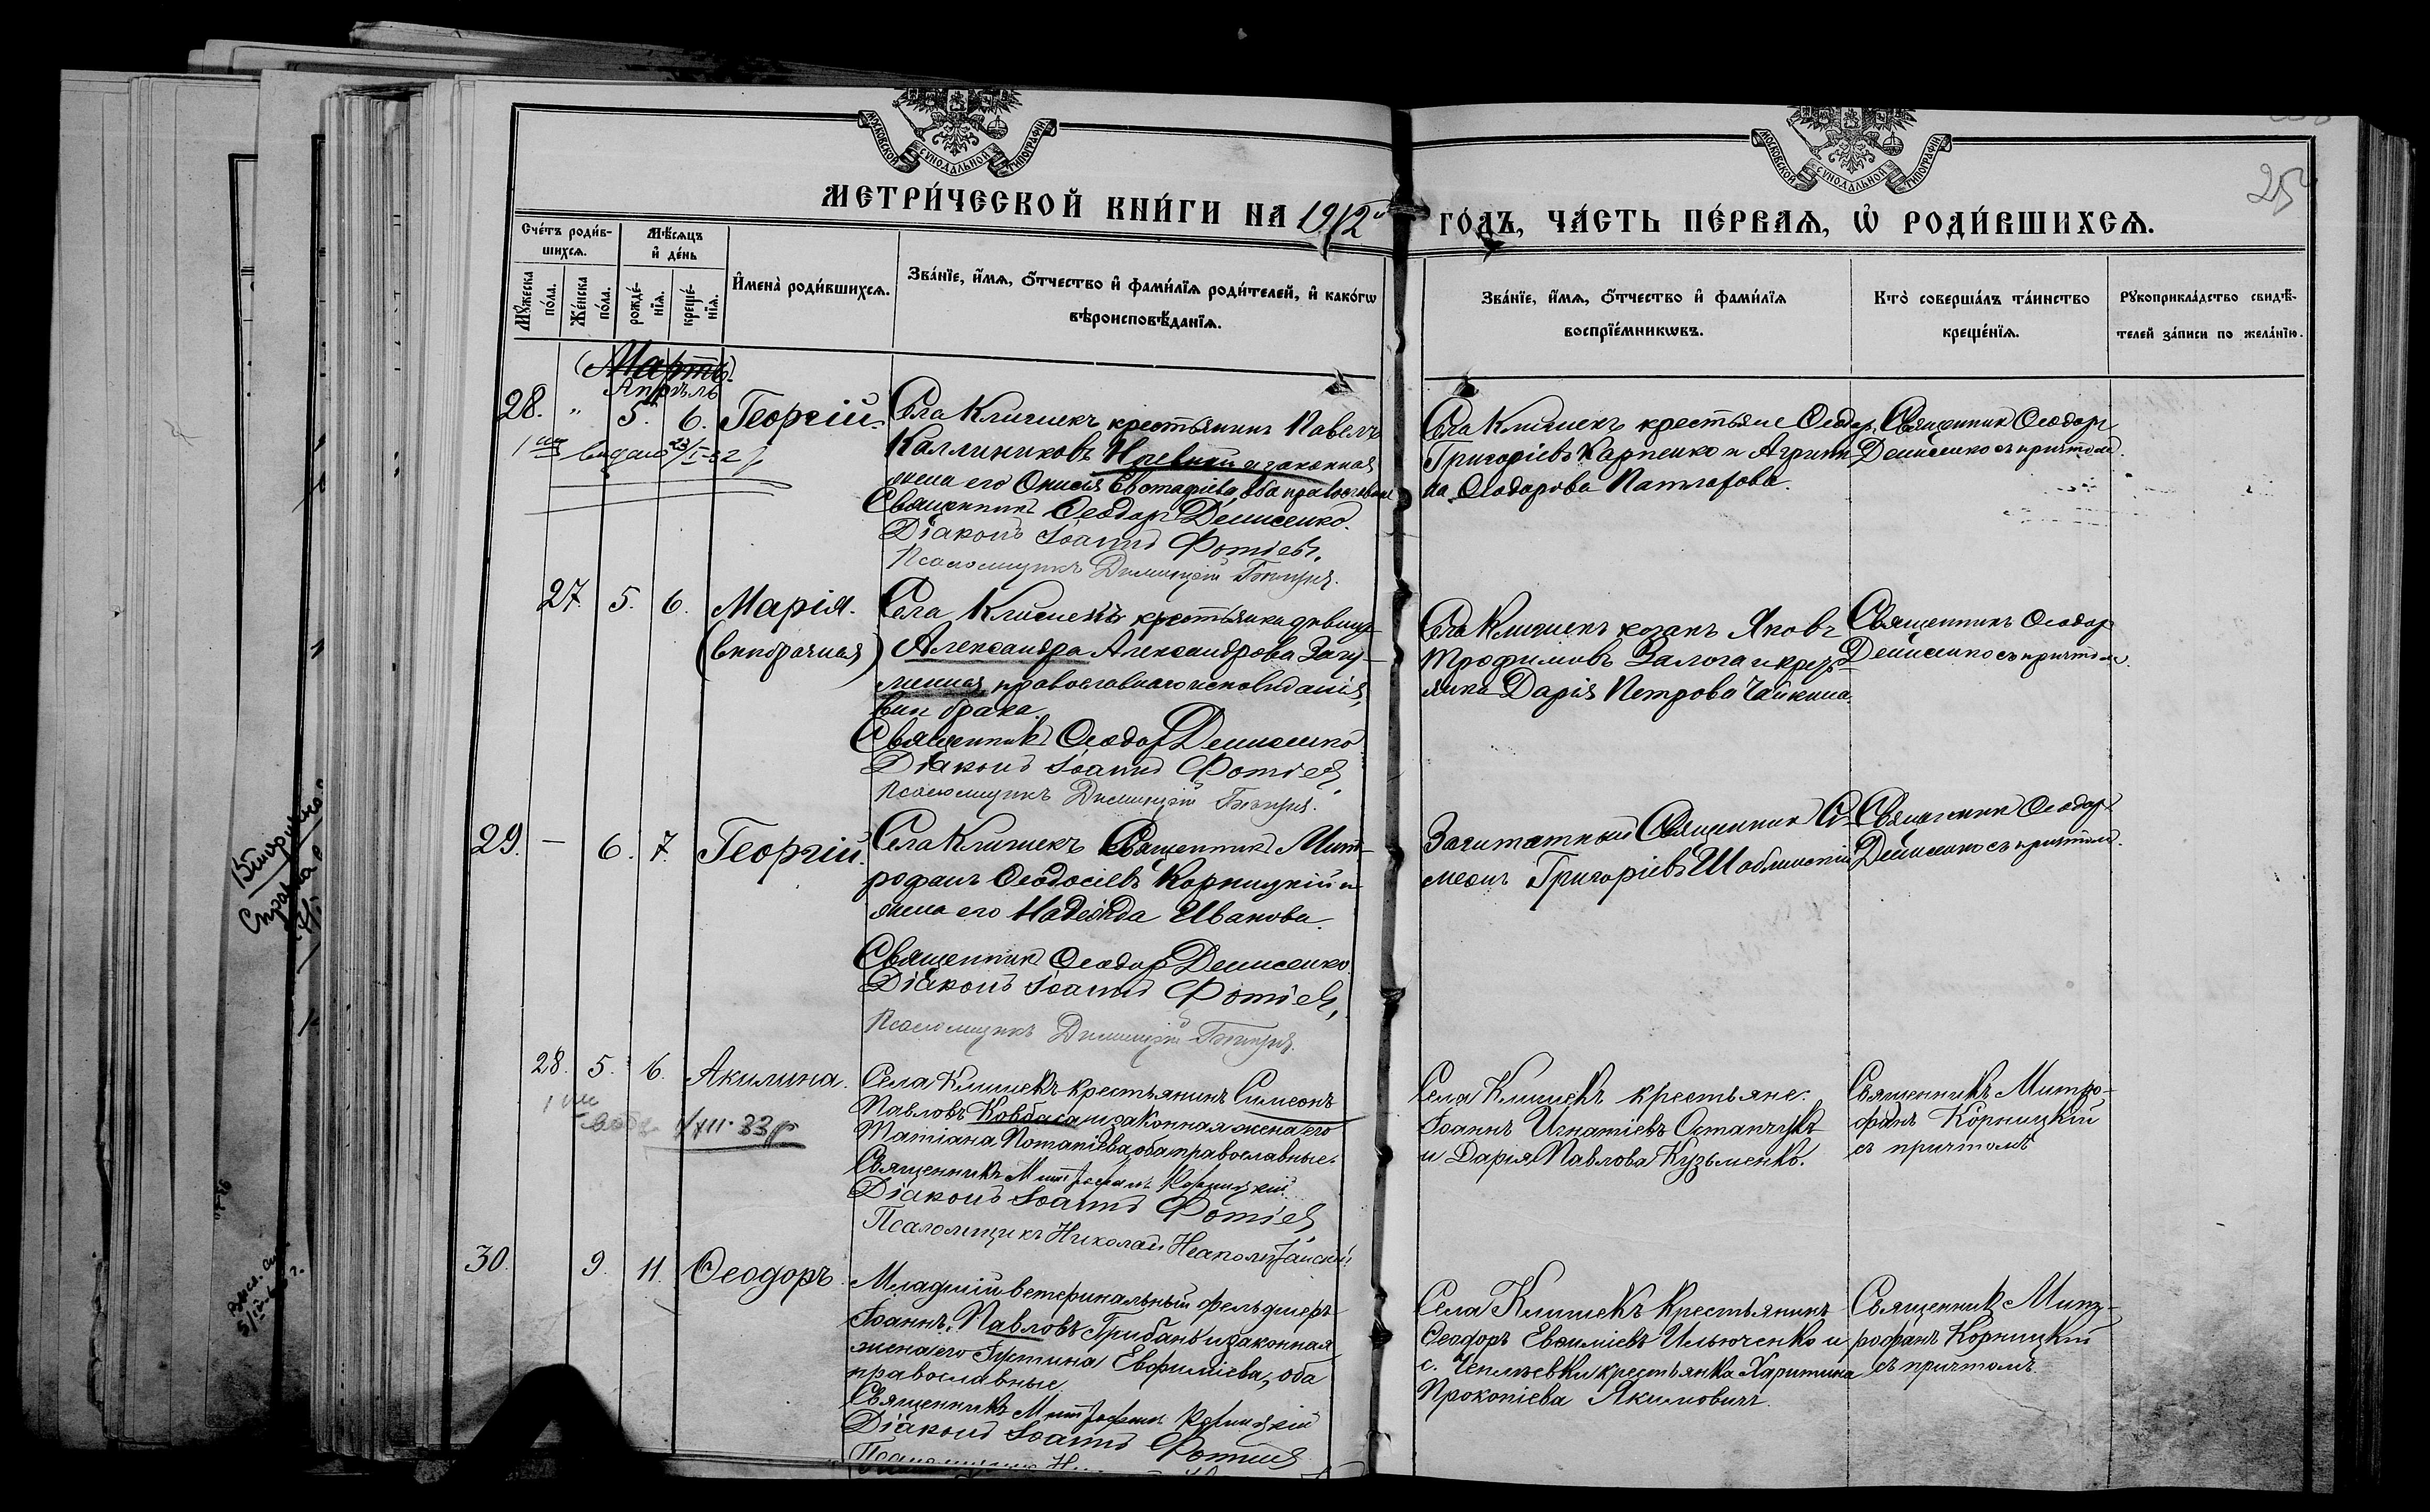 МОСКОВСКОЙ СѴНОДАЛЬНОЙ ТИПОГРАФІИ
МОСКОВСКОЙ СѴНОДАЛЬНОЙ ТИПОГРАФІИ
25
МЕТРИ́ЧЕСКОЙ КНИ́ГИ НА 1912й ГО́ДЪ, ЧА́СТЬ ПЕ́РВАѦ, Ѡ҆ РОДИ́ВШИХСѦ.
Сче́тъ роди́в-
шихсѧ.
Мѣ́сѧцъ
и҆ де́нь
Мꙋ́жеска
по́ла.
Же́нска
по́ла.
рожде́-
нїѧ.
креще́-
нїѧ.
И҆мена̀ роди́вшихсѧ.
Зва́нїе, и҆́мѧ, ѻ҆́тчество и҆ фами́лїѧ роди́телей, и҆ како́гѡ
вѣроисповѣ́данїѧ.
Зва́нїе, и҆́мѧ, ѻ҆́тчество и҆ фами́лїѧ
воспрїе́мникѡвъ.
Кто̀ соверша́лъ та́инство
креще́нїѧ.
Рꙋкоприкла́дство свидѣ́-
телей за́писи по жела́нїю.
(Мартъ)
Апрѣль
28. " 5. 6. Георгій.
1 выдано 23/I-32 г
Села Клишекъ крестьянинъ Павелъ
Каллиниковъ и законная
жена его Евстафіева, оба православные
Священникъ Ѳеодоръ Денисенко.
Діаконъ Іоаннъ Фотіевъ.
Псаломщикъ Димитрій
Села Клишекъ крестьяне Ѳеодоръ
Григоріевъ Карпенко и Агриппи-
на Ѳеодорова
Священникъ Ѳеодоръ
Денисенко съ причтомъ.
27 5. 6. Марія.
(внѣбрачная)
Села Клишекъ крестьянка дѣвица
Александра Александрова Загу-
менная православнаго исповѣданія,
внѣ брака.
Священникъ Ѳеодоръ Денисенко
Діаконъ Іоаннъ Фотіевъ,
Псаломщикъ Димитрій
Села Клишекъ козакъ Яковъ
Трофимовъ Залога и кресть-
янка Дарія Петрова Чайкина.
Священникъ Ѳеодоръ
Денисенко съ причтомъ.
29. — 6. 7. Георгій.
Села Клишекъ Священникъ Мит-
рофанъ Ѳеодосіевъ Корницкій и
жена его Надежда Иванова.
Священникъ Ѳеодоръ Денисенко.
Діаконъ Іоаннъ Фотіевъ,
Псаломщикъ Димитрій
Заштатный Священникъ Си-
меонъ Григоріевъ
Священникъ Ѳеодоръ
Денисенко съ причтомъ.
28. 5. 6. Акилина.
1/XII-33 г
Села Клишекъ крестьянинъ Симеонъ
Павловъ Ковбаса и законная жена его
Татіана Потапіева, оба православные.
Священникъ Митрофанъ Корницкій
Діаконъ Іоаннъ Фотіевъ,
Псаломщикъ Николай Неаполитанскій
Села Клишекъ крестьяне:
Іоаннъ Игнатіевъ Остапчукъ
и Дарія Павлова Кузьменко.
Священникъ Митро-
фанъ Корницкій
съ причтомъ
30. 9. 11. Ѳеодоръ.
Младшій ветеринальный фельдшеръ
Іоаннъ Павловъ Грибанъ и законная
жена его Іустина Евфиміева, оба
православные
Священникъ Митрофанъ Корницкій
Діаконъ Іоаннъ Фотіевъ
Села Клишекъ крестьянинъ
Ѳеодоръ Евѳиміевъ Ильюченко и
с. Чеплѣевки крестьянка Харитина
Прокопіева Якимовичъ.
Священникъ Мит-
рофанъ Корницкій
съ причтомъ